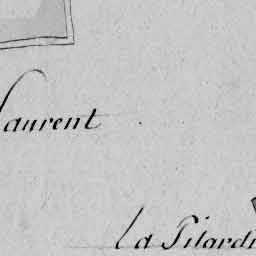 Laurent
La Pilardi